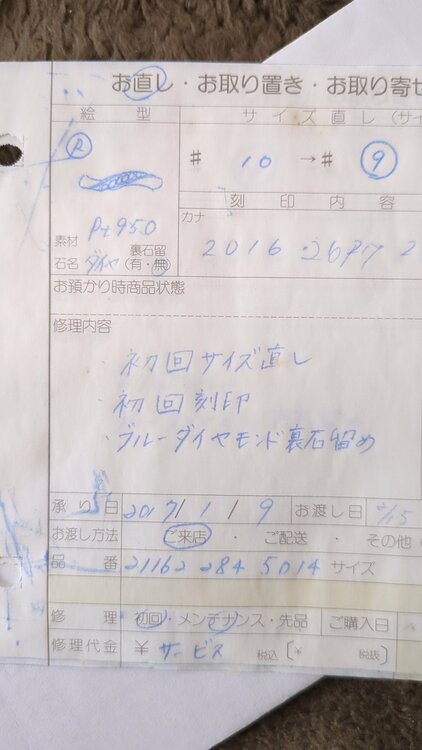 お直し・お取り置き・お取り寄せ
絵 型
サイズ直し(サイ
R
# 10 → # 9
刻 印 内 容
カナ
2016
素材 Pt950
石名 ダイヤ 裏石留(有・無)
お預かり時商品状態
修理内容
・初回サイズ直し
・初回刻印
・ブルーダイヤモンド裏石留め
承り日 2017 1 19 お渡し日
お渡し方法 ご来店 ・ ご配送 ・ その他
品 番 21162 284 5014 サイズ
修 理 初回・メンテナンス・先品 ご購入日
修理代金 ¥ サービス 税込 [¥ 税抜]